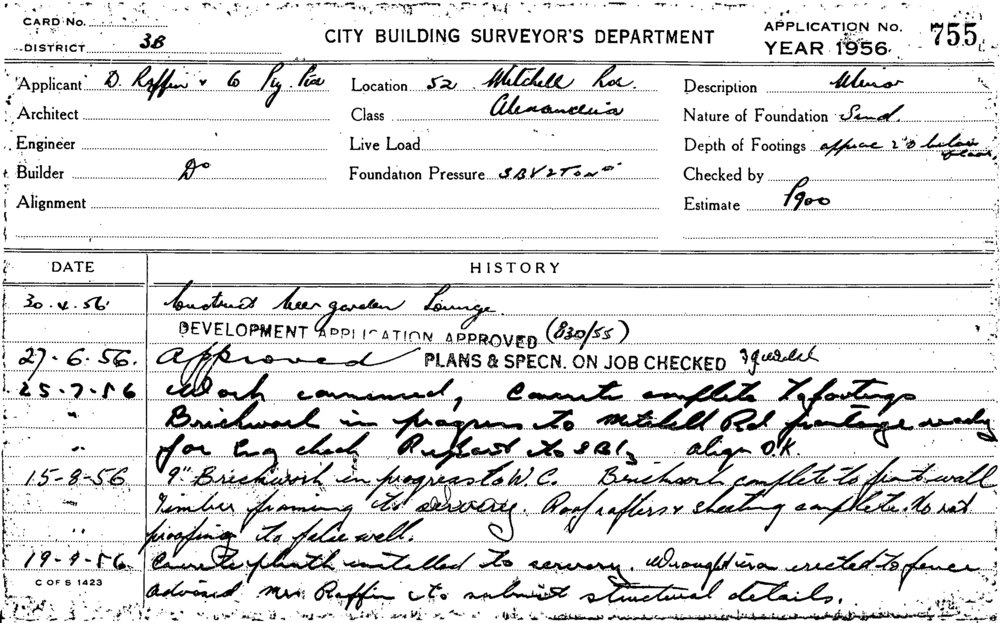 CARD No.
DISTRICT 3B
CITY BUILDING SURVEYOR'S DEPARTMENT
APPLICATION No. 755
YEAR 1956
Applicant D. Raffin & Co Pty. Location 52 Mitchell Rd. Description
Architect Class Alexandria Nature of Foundation Sand.
Engineer Live Load Depth of Footings approx 2'0 below
Builder Do Foundation Pressure Checked by
Alignment Estimate £900
DATE HISTORY
30.4.56 Construct beer garden Lounge.
DEVELOPMENT APPLICATION APPROVED (830/55)
27-6-56. Approved PLANS & SPECN. ON JOB CHECKED
25-7-56 Work commenced, Concrete complete to footings
" Brickwork in progress to Mitchell Rd frontage ready
" for Eng check Report to align O.K.
15-8-56 9" Brickwork in progress to W.C. Brickwork complete to front wall
" Timber framing to servery. Roof rafters & sheeting complete.
proofing to wall.
19-9-56 Concrete plinth installed to servery. Wrought iron erected to fence
C OF S 1423
advised Mr. Raffin to submit structural details.